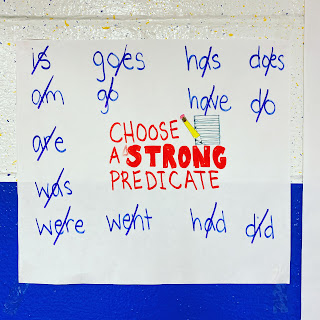 is goes has does
am go have do
CHOOSE
are A STRONG
PREDICATE
was
were went had did